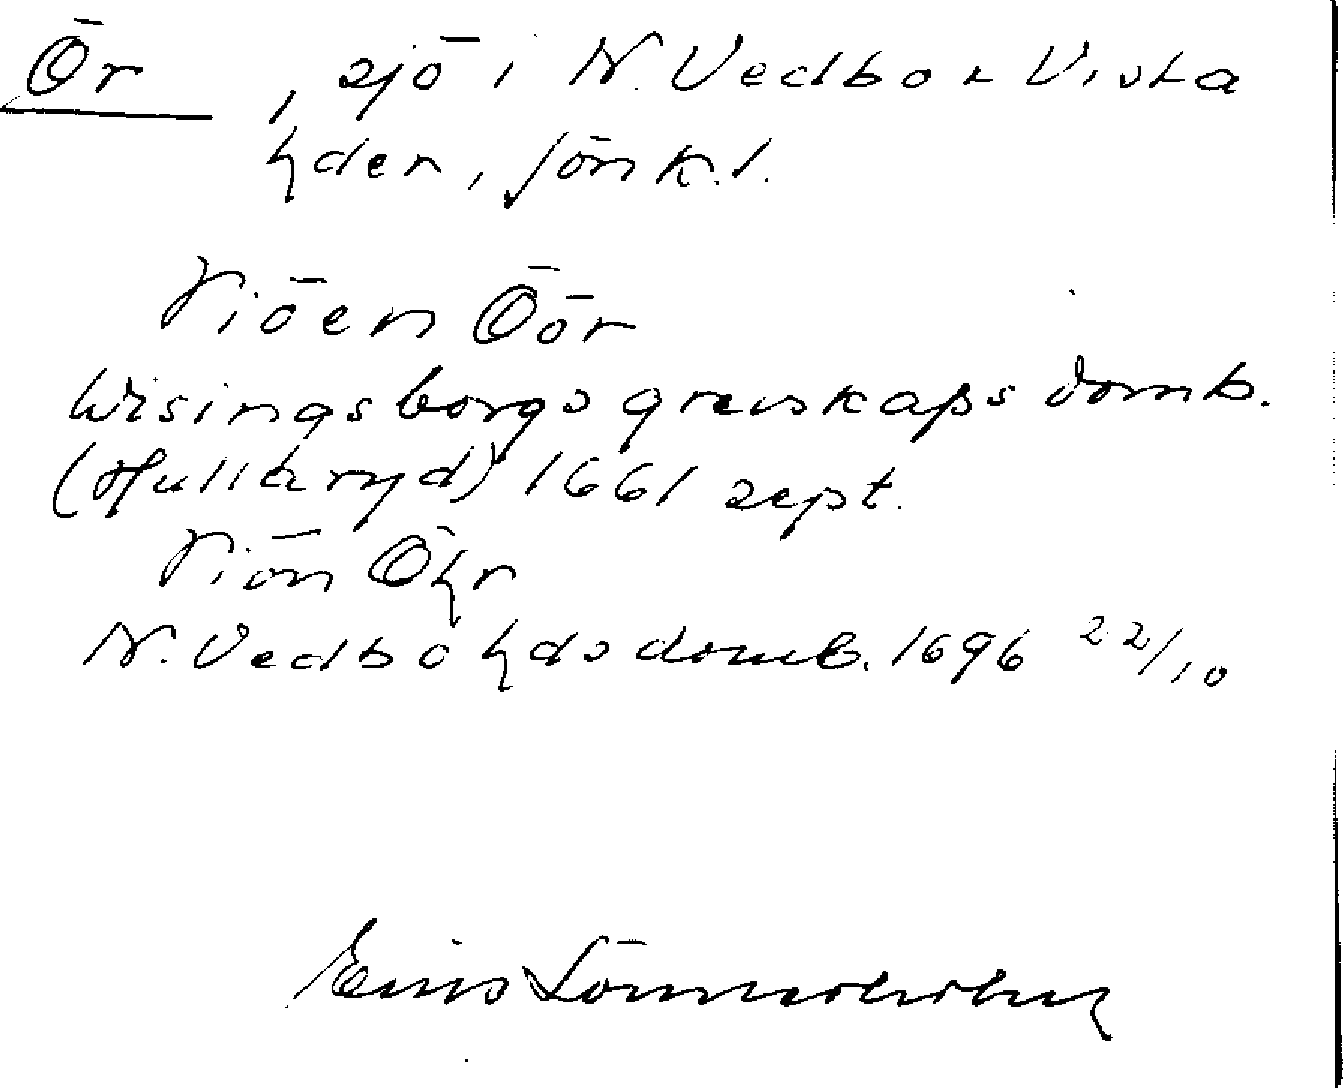 Ör, sjö i N. Vedbo o Vista
hder, Jönk.l.
Siöen Öör
Wisingsborgs grevskaps domb.
(Hullaryd) 1661 sept.
Siön Öhr
N. Vedbo hds domb. 1696 22/10